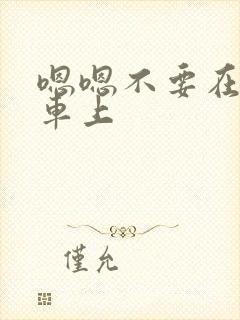 嗯嗯不要在
车上
僅允